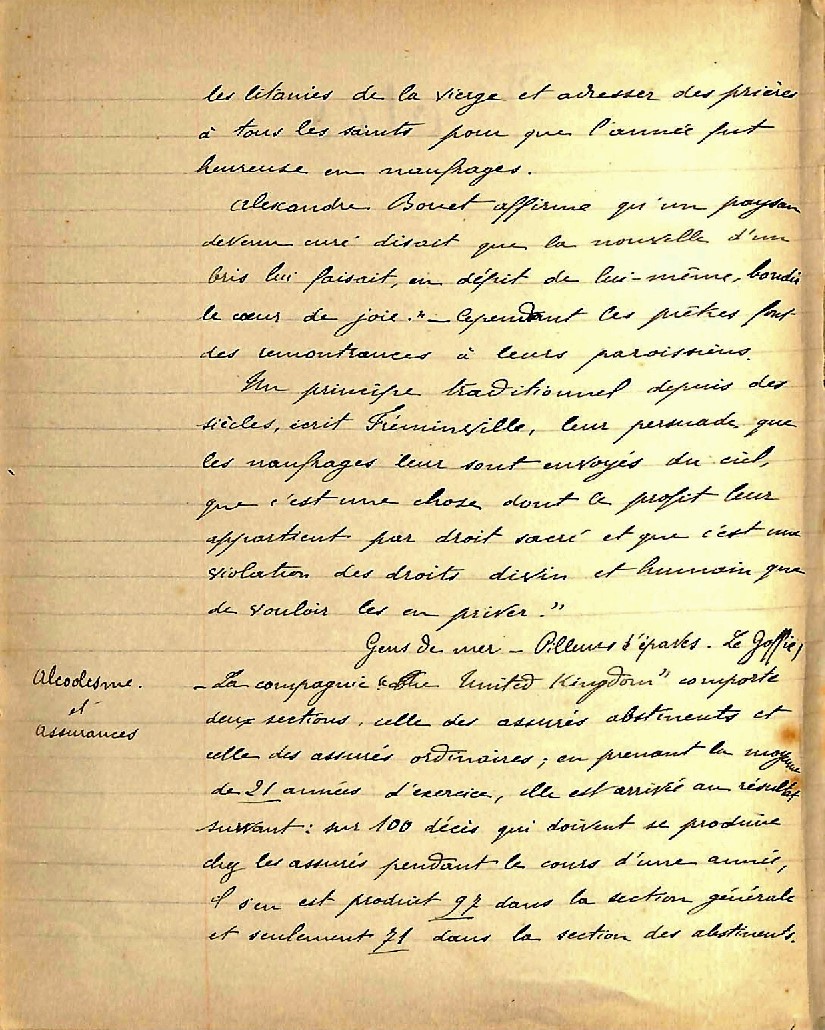 les litanies de la vierge et adresser des prières
à tous les saints pour que l'année fut
heureuse en naufrages.
Alexandre Bouet affirme qu'un paysan
devenu curé disait que la nouvelle d'un
bris lui faisait, en dépit de lui-même, bondir
le cœur de joie." – Cependant les prêtres font
des remontrances à leurs paroissiens.
Un principe traditionnel depuis des
siècles, écrit Fréminville, leur persuade que
les naufrages leur sont envoyés du ciel,
que c'est une chose dont le profit leur
appartient par droit sacré et que c'est une
violation des droits divin et humain que
de vouloir les en priver."
Gens de mer – Pilleurs d'épaves – Le Goffic)
Alcoolisme.
et
Assurances
– La compagnie "The United Kingdom" comporte
deux sections, celle des assurés abstinents et
celle des assurés ordinaires ; en prenant la moyenne
de 21 années d'exercice, elle est arrivée au résultat
suivant : sur 100 décès qui doivent se produire
chez les assurés pendant le cours d'une année,
il s'en est produit 97 dans la section générale
et seulement 71 dans la section des abstinents.